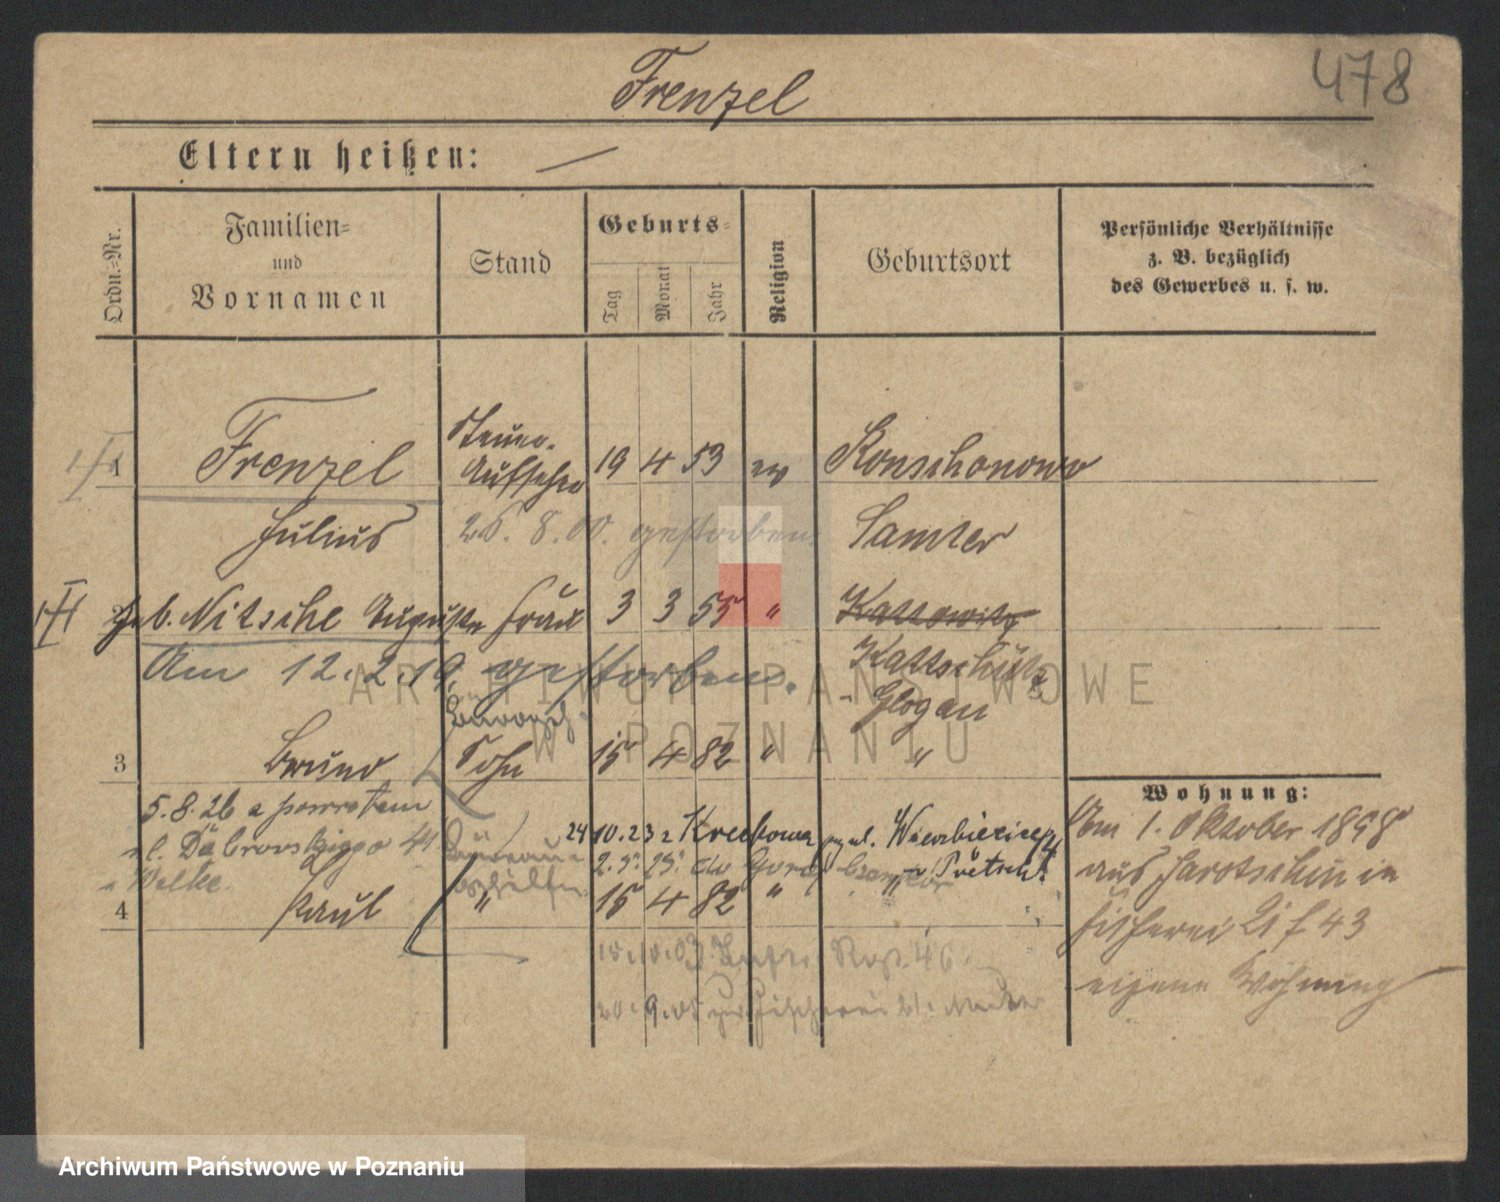 Frenzel
478
Eltern heißen: —
Ordn.-Nr.
Familien-
und
Vornamen
Stand
Geburts-
Tag
Monat
Jahr
Religion
Geburtsort
Persönliche Verhältnisse
z. B. bezüglich
des Gewerbes u. s. w.
1
Frenzel
Steuer-
Aufseher
19 4 53 ev
Konschonowo
Julius
26. 8. 00. gestorben
Samter
2
geb. Nitsche Auguste Frau 3 3 55 "
Kattowitz
Am 12. 2. 19. gestorben.
Kattschütz
Glogau
3
Bruno Sohn 15 4 82 " "
5. 8. 26 z powrotem
ul. Dąbrowskiego 44
Welke
24 10. 23 z Krectowa ul. Wierzbięcice
Büreau-
gehülfe
Pietsch
4
Paul " 15 4 82 " "
15. 10. 03
20. 9. 05 zur Fischerei 21.
Wohnung:
Am 1. Oktober 1898
aus Jarotschin in
Fischerei 21 f 43
eigene Wohnung
ARCHIWUM PAŃSTWOWE
W POZNANIU
Archiwum Państwowe w Poznaniu